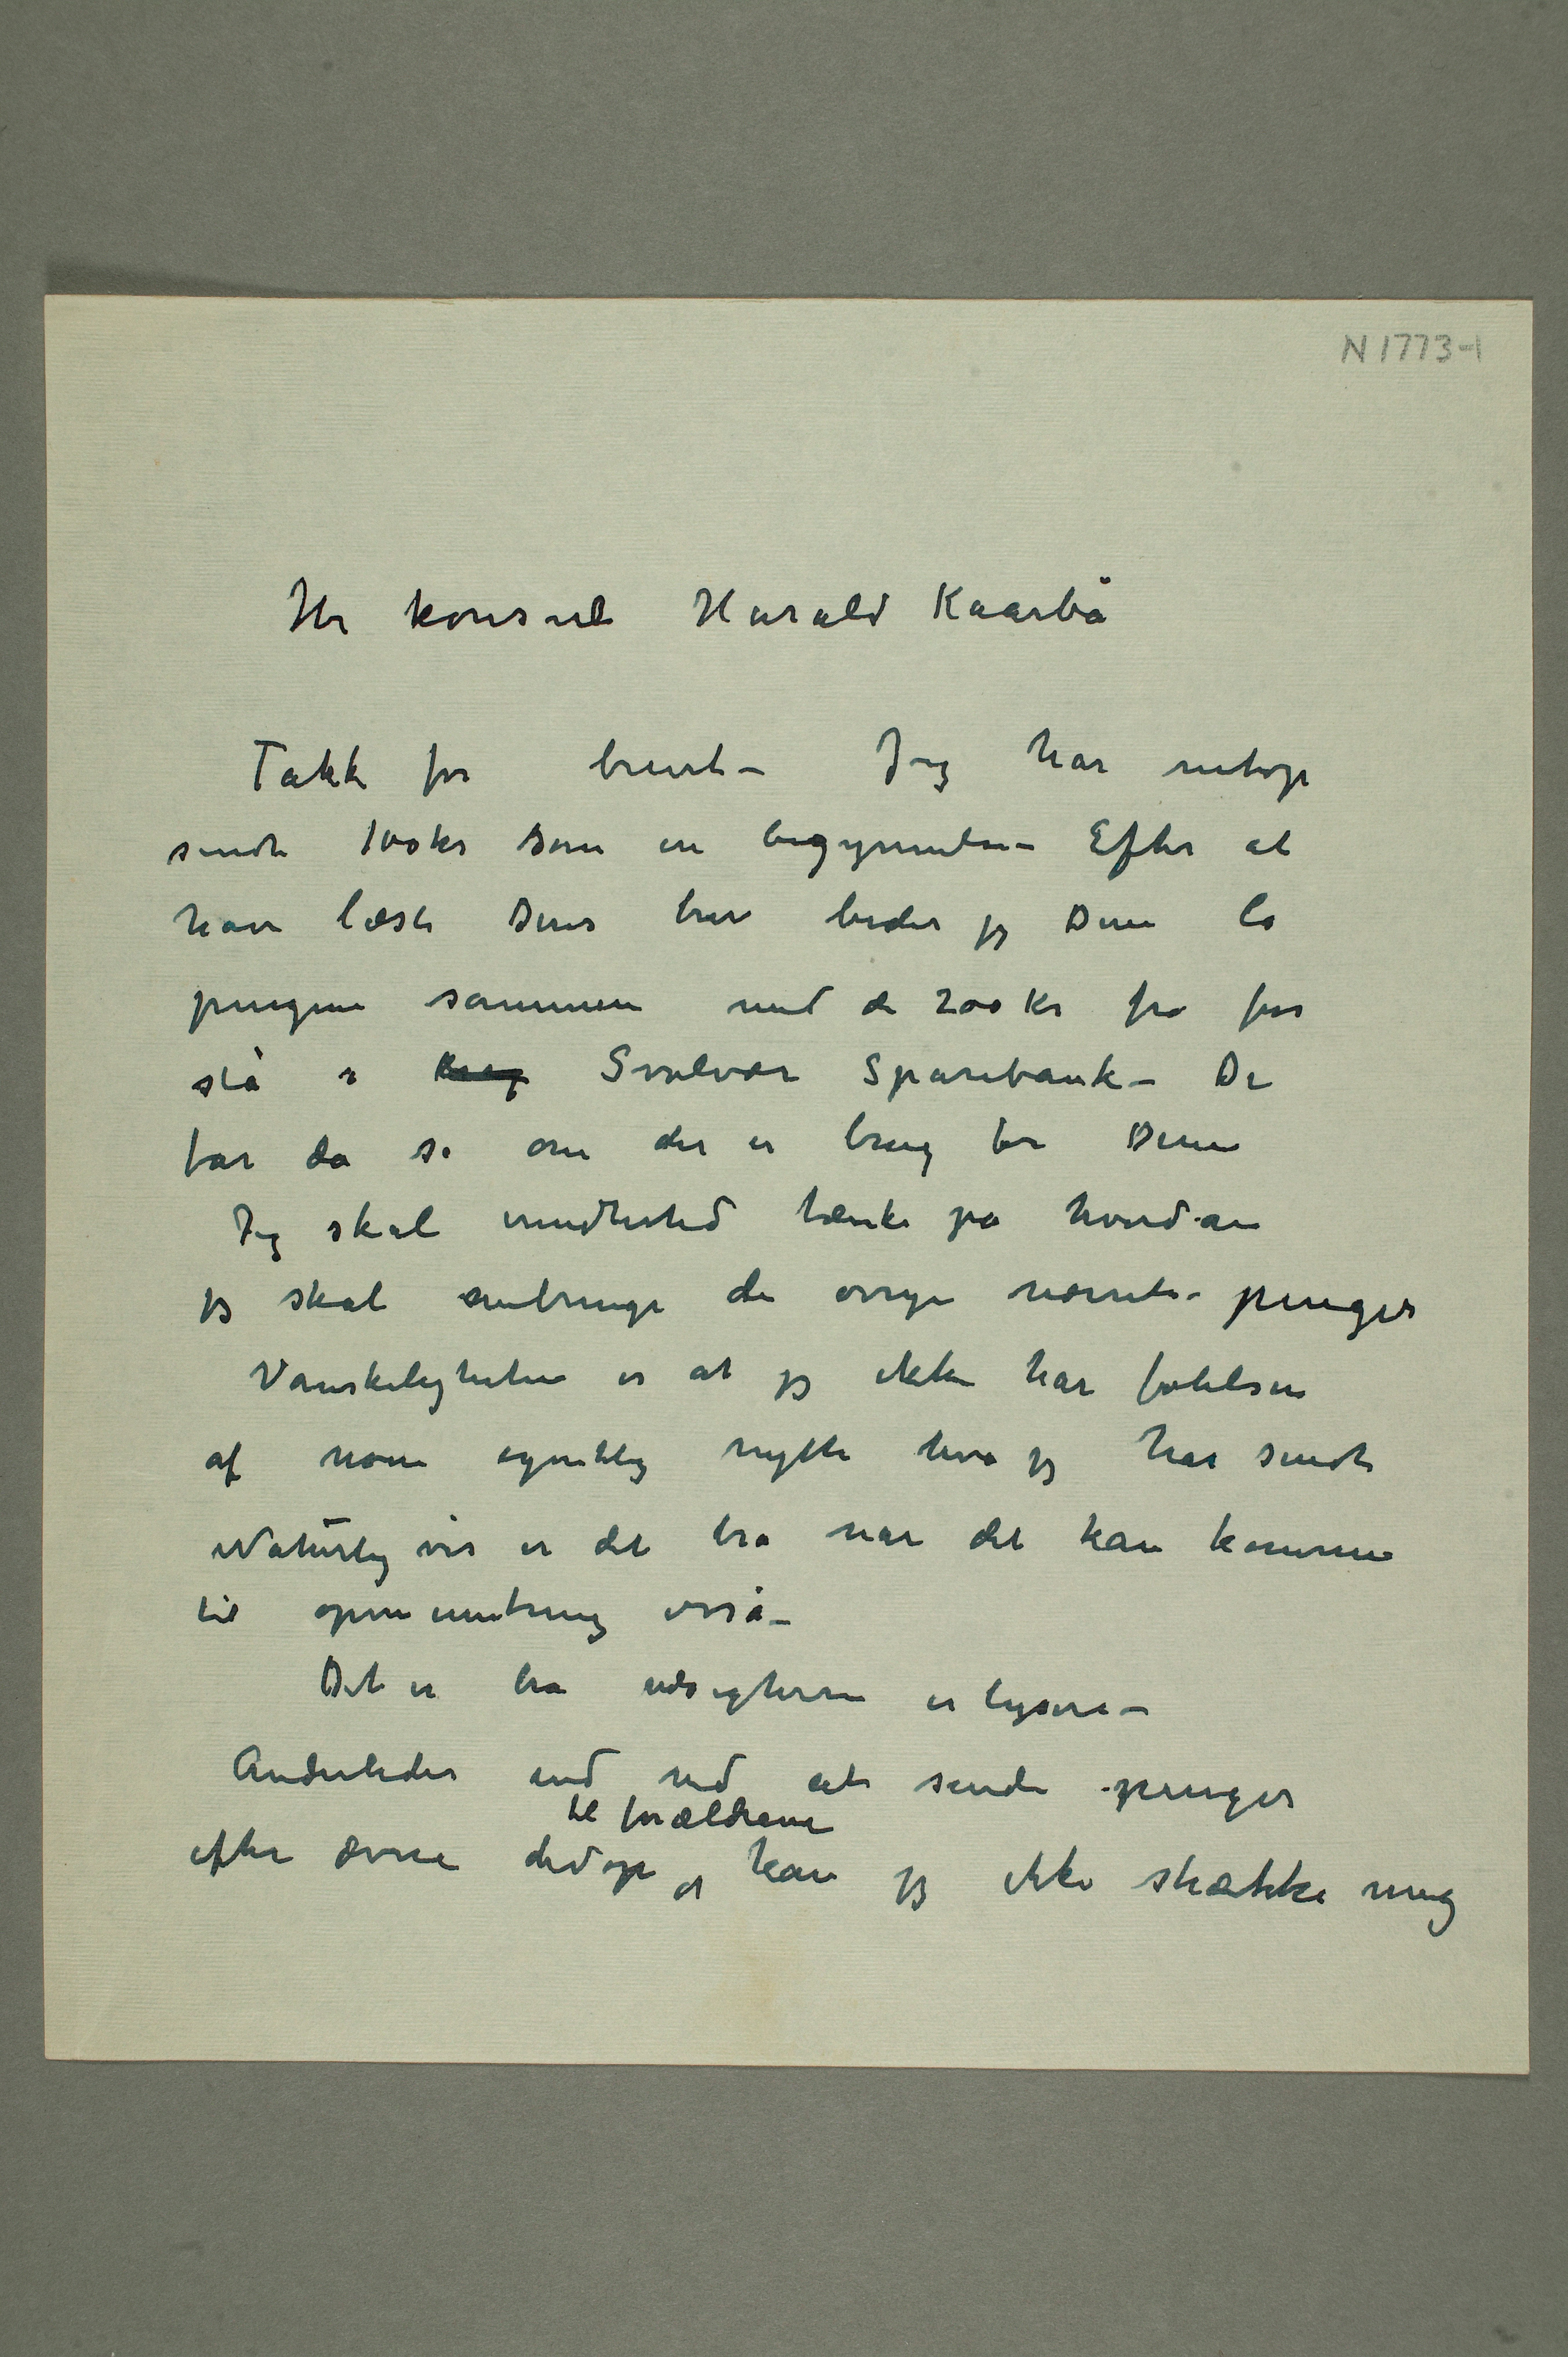 N 1773-1
Hr konsul Harald Kaarbø
Takk for brevet – Jeg har netop
sendt 100 kr som en begynnelse – Efter at
have læst Deres brev beder jeg Dem la
pengene sammen med de 200 kr fra før
stå i Svolvær Sparebank – De
får da se om der er brug for Dem
Jeg skal imidlertid tænke på hvordan
jeg skal anbringe de øvrige penger
Vanskeligheten er at jeg ikke har følelsen
af noen egentlig nytte hva jeg har sendt
Naturligvis er det bra når det kan komme
til opmuntring også –
Det er bra udsigterne er lysere –
Anderledes end ved at sende penger
til forældrene
efter ævne derop kan jeg ikke strække mig